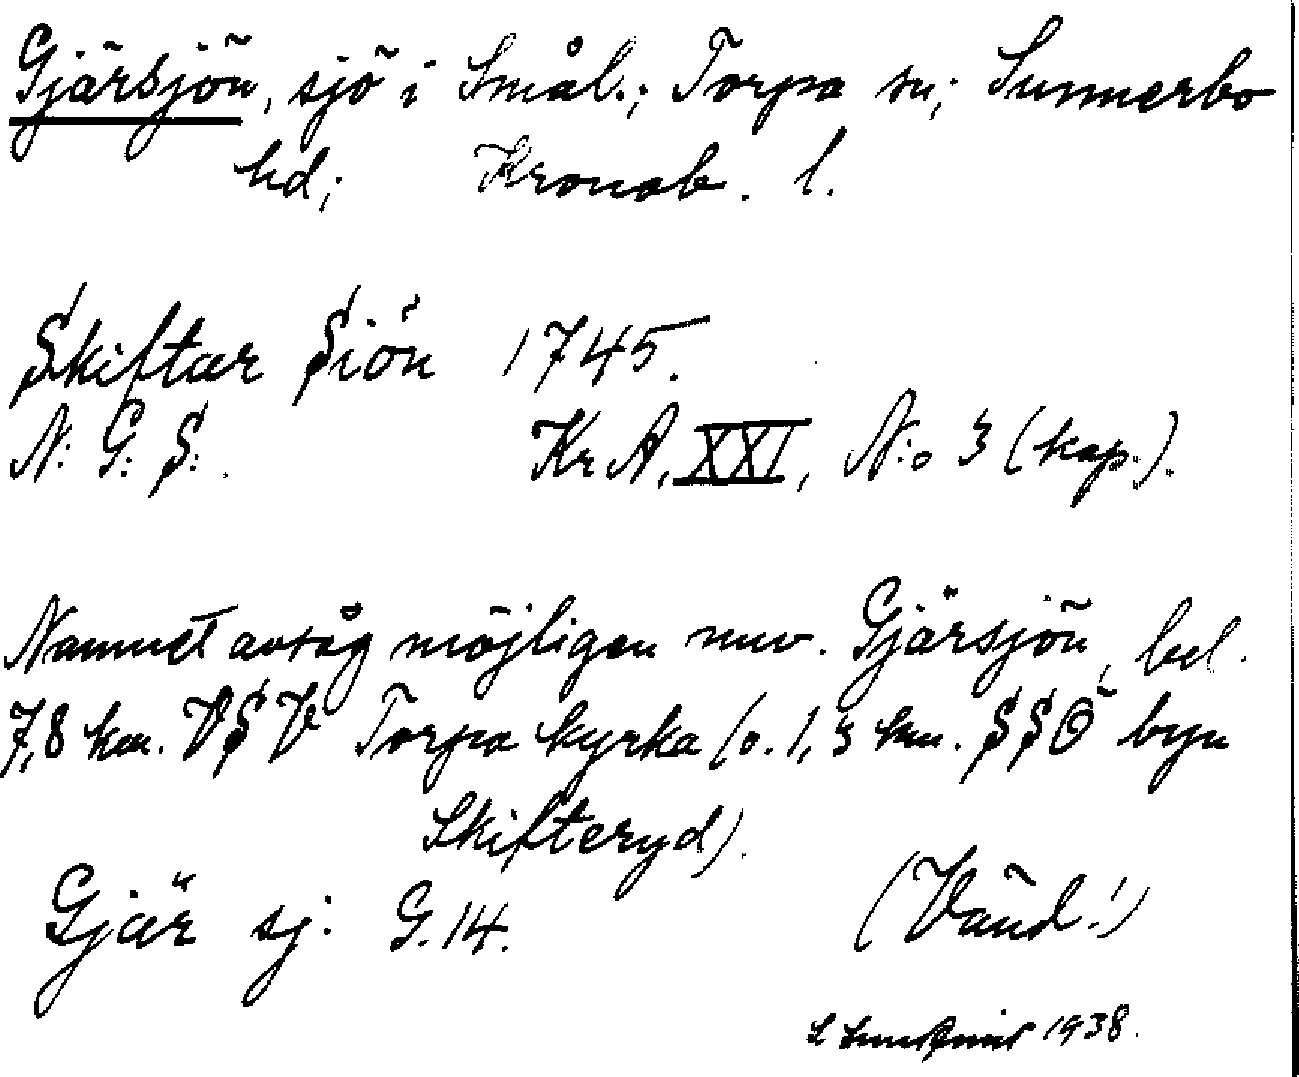 Gjärsjön, sjö i Smål.; Torpa sn; Sunnerbo
hd; Kronob. l.
Skiftar Siön 1745.
N: G: S:.
KrA, XXI, N:o 3 (kop.).
Namnet avsåg möjligen nuv. Gjärsjön, bel.
7,8 km. VSV Torpa kyrka (o. 1,3 km. SSÖ byn
Skifteryd).
Gjär sj: G.14.
(Vänd!)
1938.